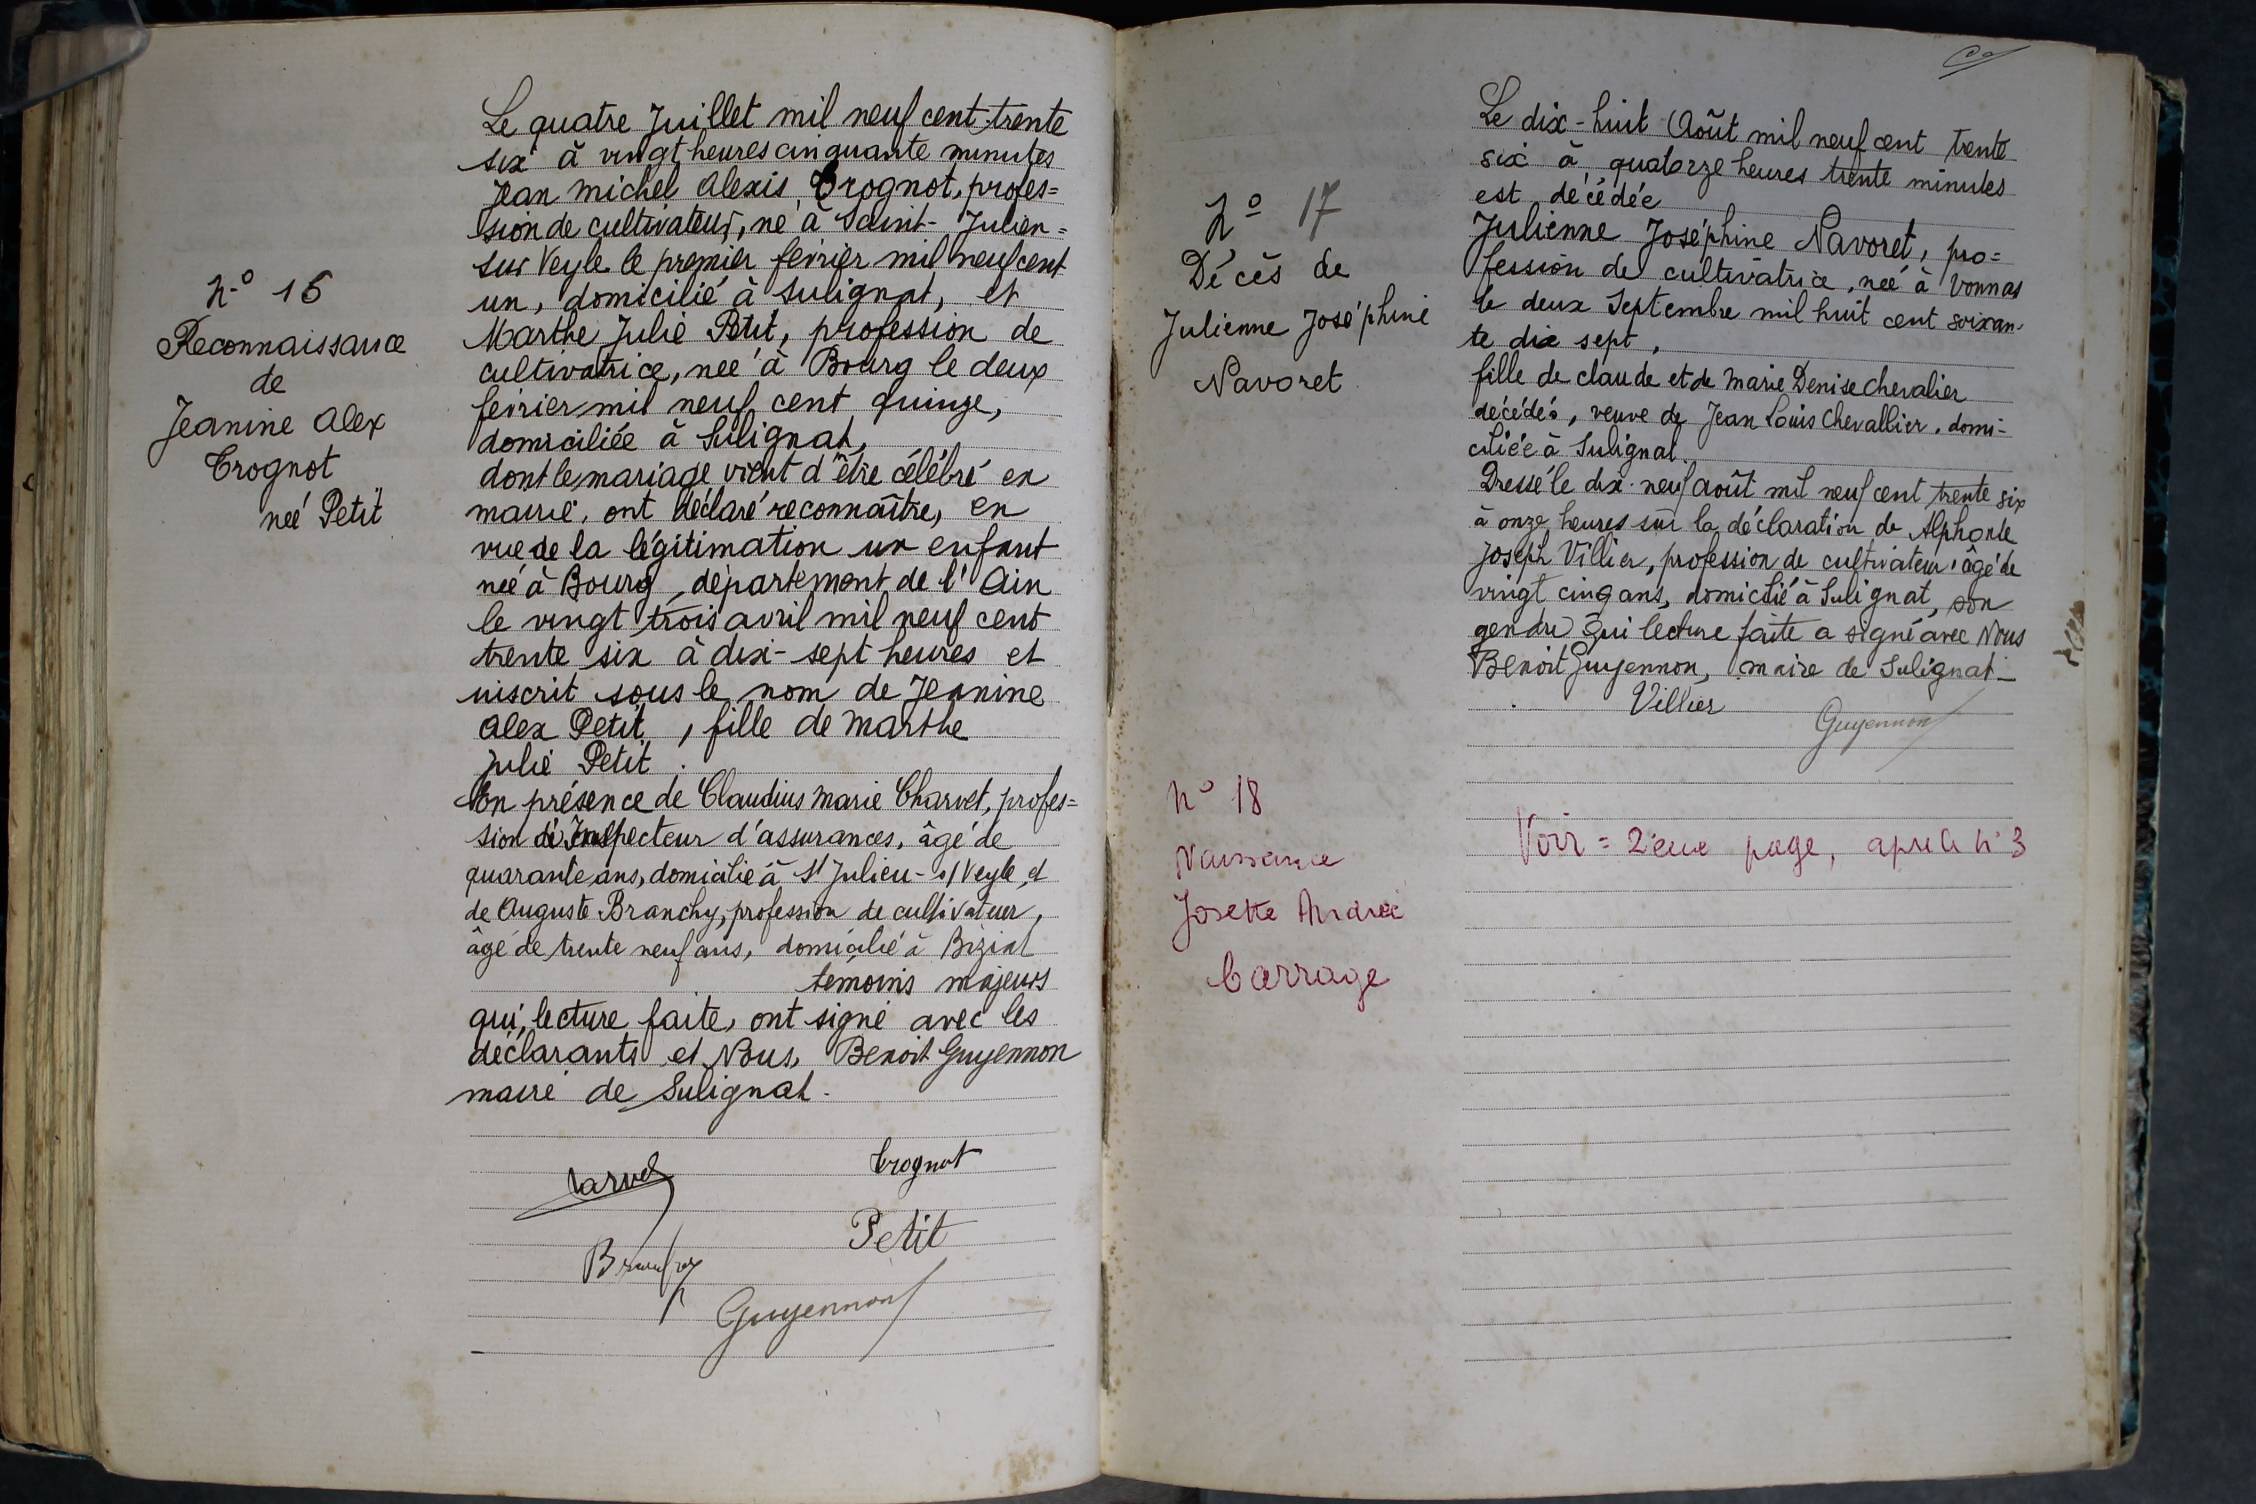 N-o 16
Reconnaissance
de
Jeanine Alex
Trognot
née Petit
Le quatre Juillet mil neuf cent trente
six à vingt heures cinquante minutes
Jean Michel Alexis Trognot, profes=
sion de cultivateur, né à Saint-Julien=
sur Veyle le premier février mil neuf cent
un, domicilié à Sulignat, et
Marthe Julie Petit, profession de
cultivatrice, née à Bourg le deux
février mil neuf cent quinze,
domiciliée à Sulignat,
dont le mariage vient d'être célébré en
mairie, ont déclaré reconnaître, en
vue de la légitimation un enfant
née à Bourg, département de l'Ain
le vingt trois avril mil neuf cent
trente six à dix-sept heures et
inscrit sous le nom de Jeanine
Alex Petit, fille de Marthe
Julie Petit.
En présence de Claudius Marie Charvet, profes=
sion de Inspecteur d'assurances, âgé de
quarante ans, domicilié à St Julien-s/Veyle, et
de Auguste Branchy, profession de cultivateur,
âgé de trente neuf ans, domicilié à Biziat
témoins majeurs
qui, lecture faite, ont signé avec les
déclarants et Nous, Benoit Guyennon
maire de Sulignat.
Trognot
Petit
Guyennon
No 17
Décès de
Julienne Joséphine
Navoret
Le dix-huit Août mil neuf cent trente
six à quatorze heures trente minutes
est décédée
Julienne Joséphine Navoret, pro=
fession de cultivatrice, née à Vonnas
le deux Septembre mil huit cent soixan-
te dix sept,
fille de Claude et de Marie Denise Chevalier
décédés, veuve de Jean Louis Chevallier, domi-
ciliée à Sulignat.
Dressé le dix-neuf août mil neuf cent trente six
à onze heures sur la déclaration de Alphonse
Joseph Villier, profession de cultivateur, âgé de
vingt cinq ans, domicilié à Sulignat, son
gendre qui lecture faite a signé avec Nous
Benoit Guyennon, maire de Sulignat-
Villier
Guyennon
No 18
Naissance
Josette Andrée
Carrage
Voir = 2ème page, après n° 3